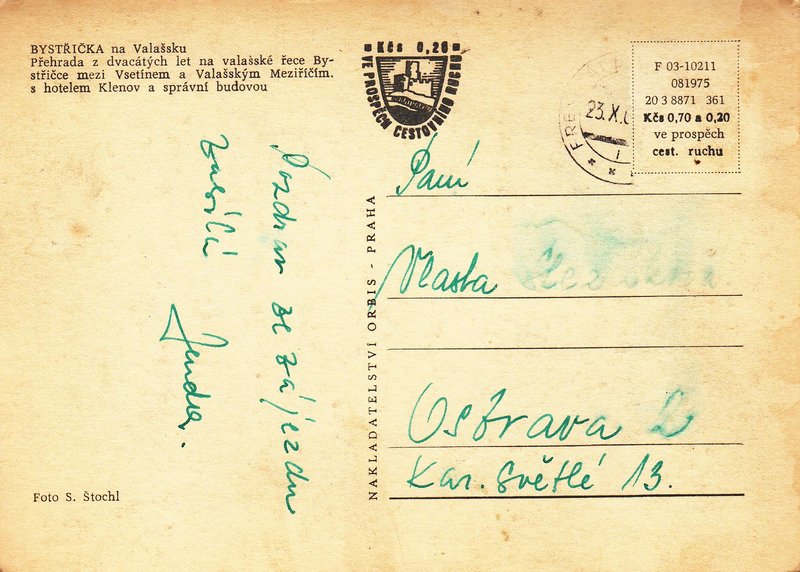 BYSTŘIČKA na Valašsku
Přehrada z dvacátých let na valašské řece By-
střičce mezi Vsetínem a Valašským Meziříčím,
s hotelem Klenov a správní budovou
Kčs 0,20
VE PROSPĚCH CESTOVNÍHO RUCHU
23.X.
F 03-10211
081975
20 3 8871 361
Kčs 0,70 a 0,20
ve prospěch
cest. ruchu
Pozdrav ze zájezdu
zasílá
Jendra.
NAKLADATELSTVÍ ORBIS - PRAHA
Paní
Vlasta
Ostrava 2
Kar. Světlé 13.
Foto S. Štochl